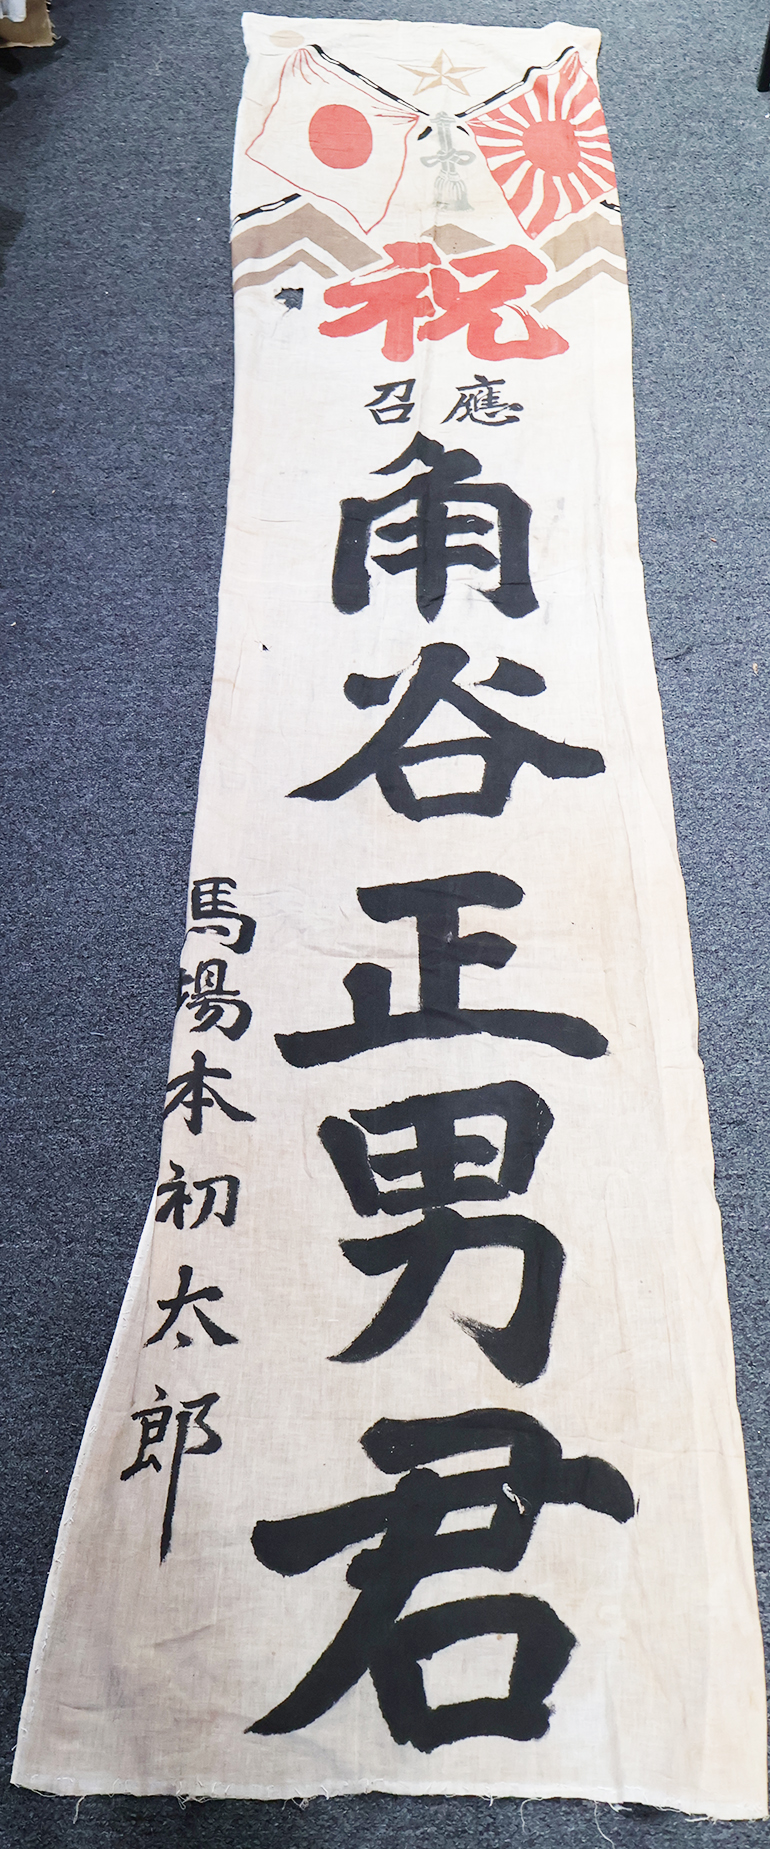 祝
應召
角谷正男君
馬場本初太郎